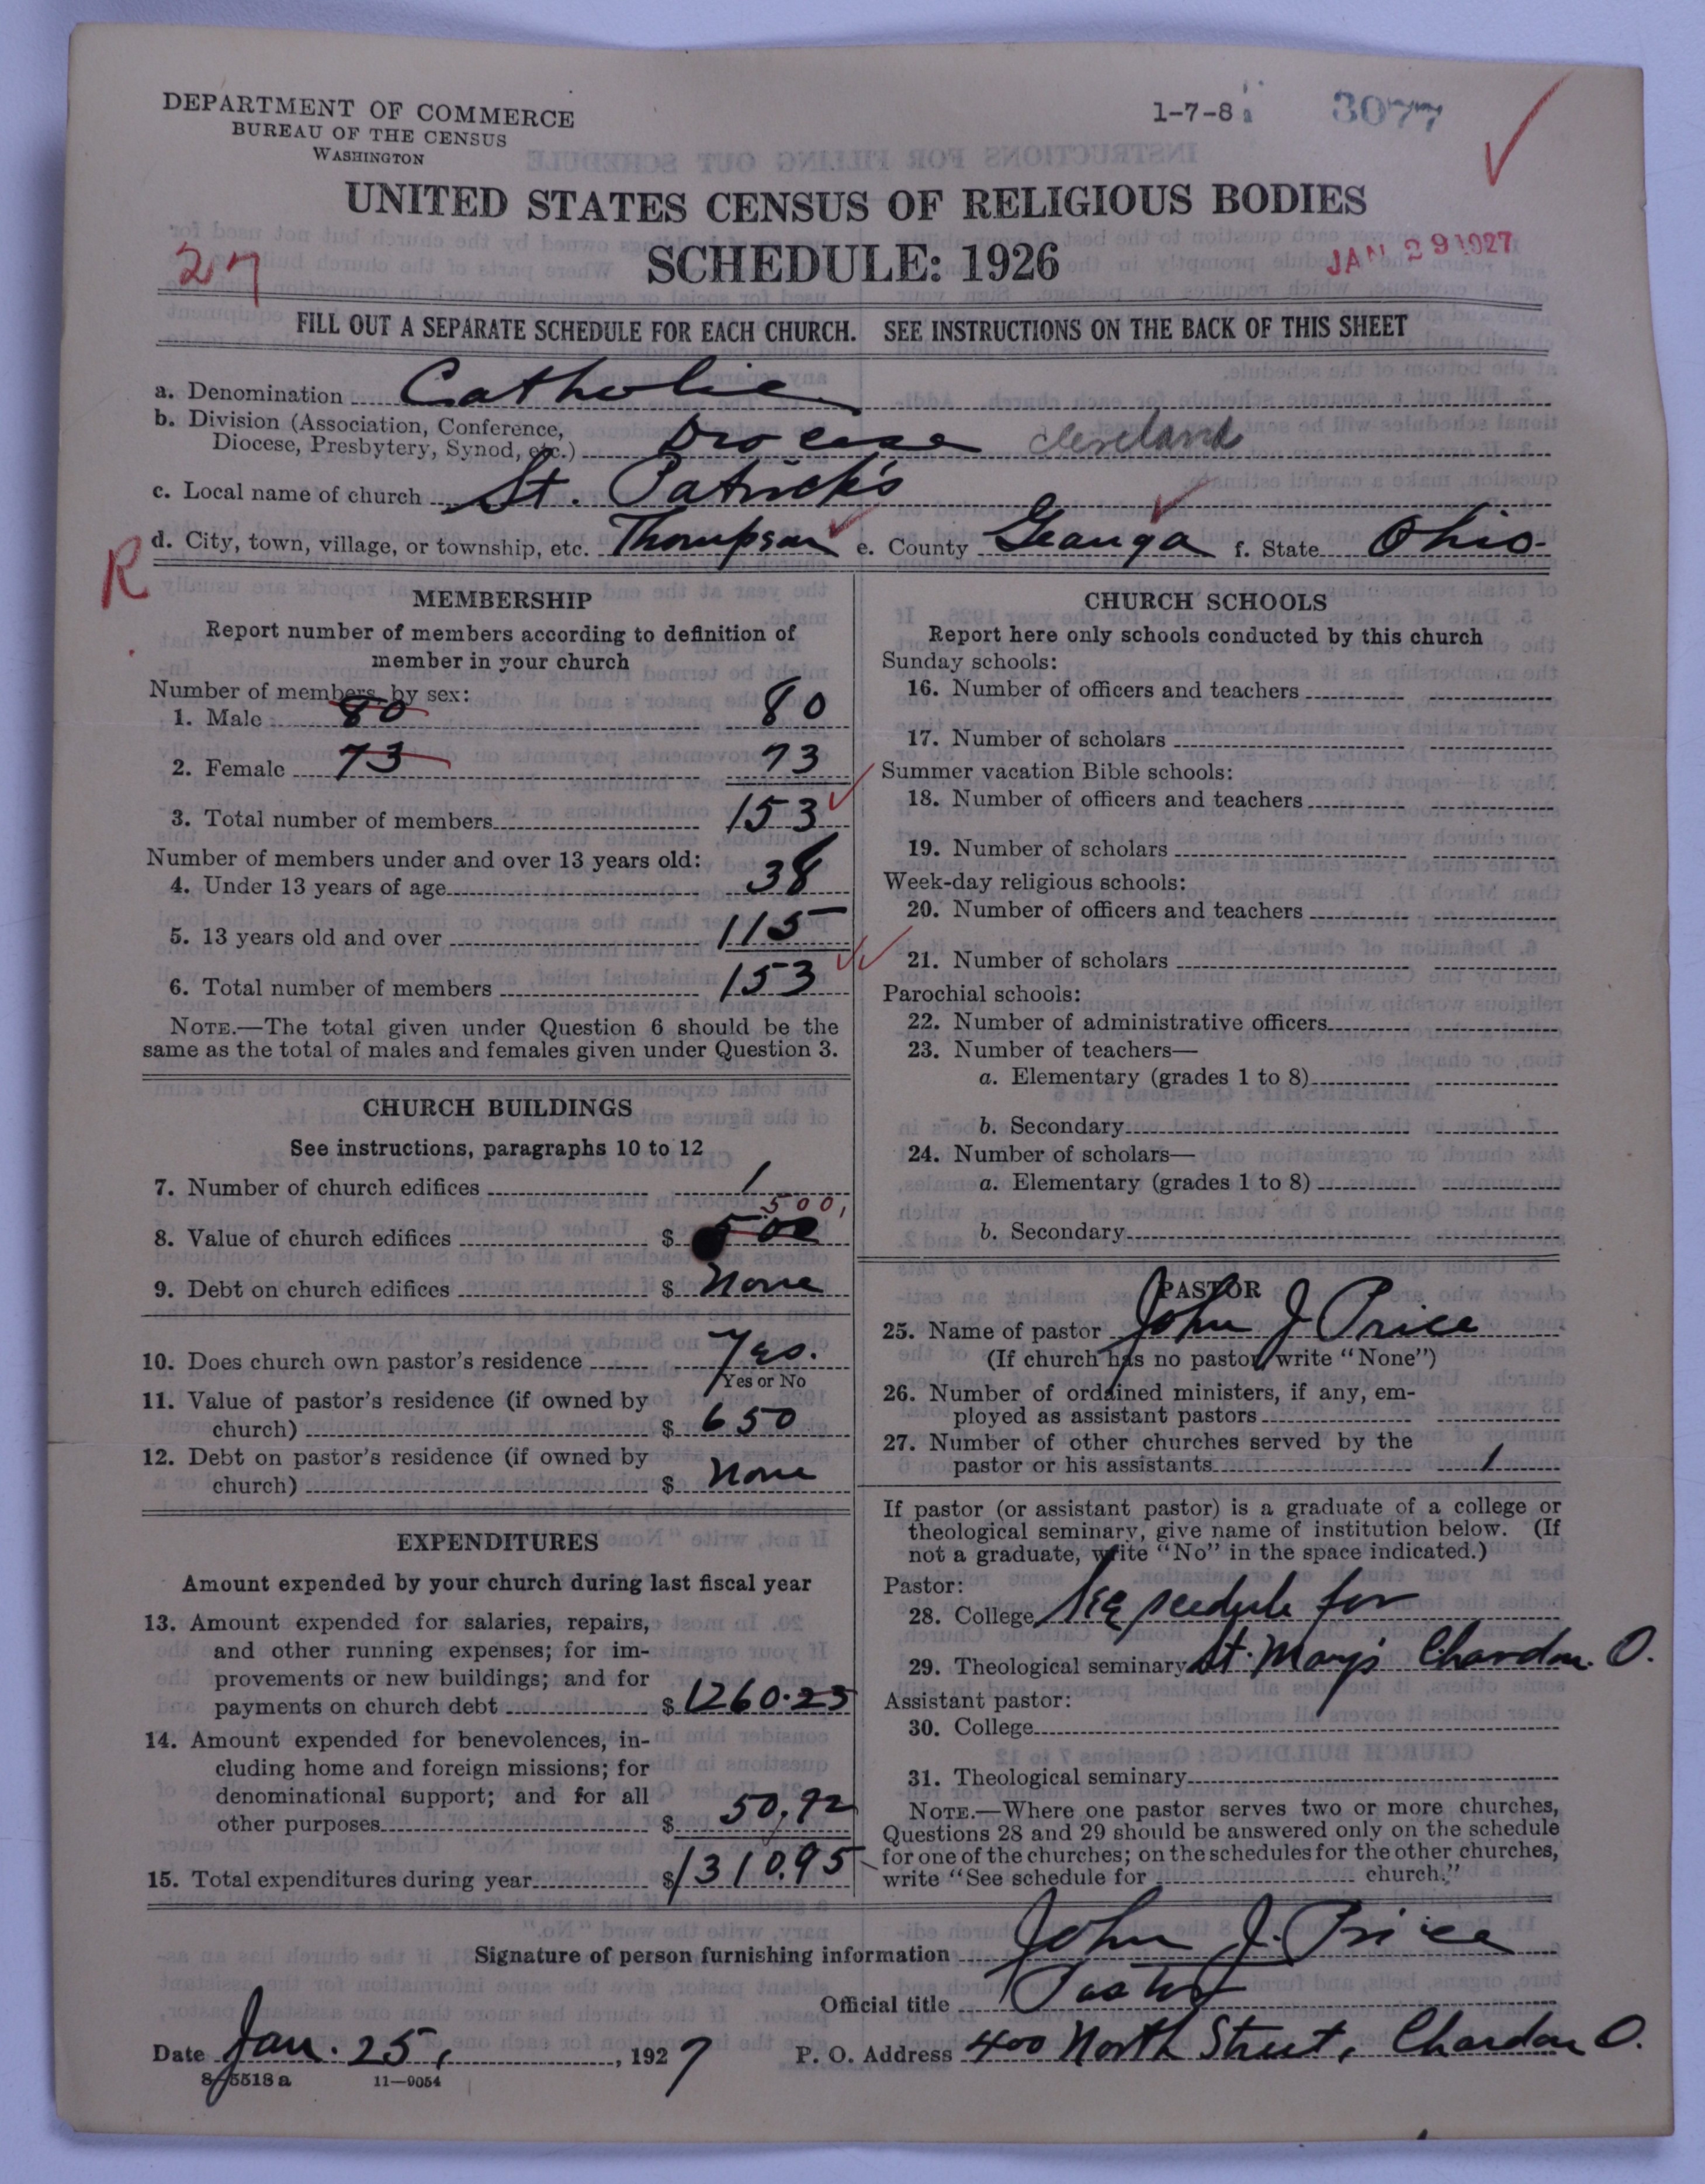 DEPARTMENT OF COMMERCE
BUREAU OF THE CENSUS
WASHINGTON
1-7-8
3077
UNITED STATES CENSUS OF RELIGIOUS BODIES
SCHEDULE: 1926
27
JAN 29 1927
FILL OUT A SEPARATE SCHEDULE FOR EACH CHURCH. SEE INSTRUCTIONS ON THE BACK OF THIS SHEET
a. Denomination Catholic
b. Division (Association, Conference,
Diocese, Presbytery, Synod, etc.) Diocese Cleveland
c. Local name of church St. Patrick's
R
d. City, town, village, or township, etc. Thompson e. County Geauga f. State Ohio.
MEMBERSHIP
Report number of members according to definition of
member in your church
Number of members by sex:
1. Male 80 80
2. Female 73 73
3. Total number of members 153
Number of members under and over 13 years old:
4. Under 13 years of age 38
5. 13 years old and over 115
6. Total number of members 153
NOTE.—The total given under Question 6 should be the
same as the total of males and females given under Question 3.
CHURCH BUILDINGS
See instructions, paragraphs 10 to 12
7. Number of church edifices 1
500,
8. Value of church edifices $ 500
9. Debt on church edifices $ None
10. Does church own pastor's residence Yes.
Yes or No
11. Value of pastor's residence (if owned by
church) $ 650
12. Debt on pastor's residence (if owned by
church) $ None
EXPENDITURES
Amount expended by your church during last fiscal year
13. Amount expended for salaries, repairs,
and other running expenses; for im-
provements or new buildings; and for
payments on church debt $ 1260.23
14. Amount expended for benevolences, in-
cluding home and foreign missions; for
denominational support; and for all
other purposes $ 50.72
15. Total expenditures during year $ 1310.95
CHURCH SCHOOLS
Report here only schools conducted by this church
Sunday schools:
16. Number of officers and teachers
17. Number of scholars
Summer vacation Bible schools:
18. Number of officers and teachers
19. Number of scholars
Week-day religious schools:
20. Number of officers and teachers
21. Number of scholars
Parochial schools:
22. Number of administrative officers
23. Number of teachers—
a. Elementary (grades 1 to 8)
b. Secondary
24. Number of scholars—
a. Elementary (grades 1 to 8)
b. Secondary
PASTOR
25. Name of pastor John J Price
(If church has no pastor write "None")
26. Number of ordained ministers, if any, em-
ployed as assistant pastors
27. Number of other churches served by the
pastor or his assistants 1
If pastor (or assistant pastor) is a graduate of a college or
theological seminary, give name of institution below. (If
not a graduate, write "No" in the space indicated.)
Pastor:
28. College See scedule for
29. Theological seminary St. Mary's Chardon. O.
Assistant pastor:
30. College
31. Theological seminary
NOTE.—Where one pastor serves two or more churches,
Questions 28 and 29 should be answered only on the schedule
for one of the churches; on the schedules for the other churches,
write "See schedule for church."
Signature of person furnishing information John J. Price
Official title Pastor
Date Jan. 25, 1927 P. O. Address 400 North Street, Chardon O.
8-5518a 11—9054